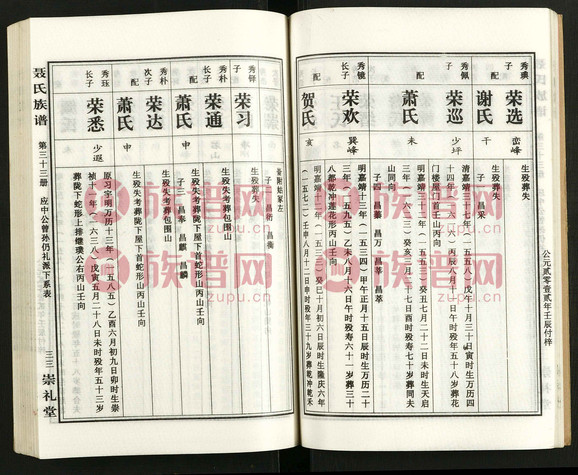 公元贰零壹贰年壬辰付梓
秀璵
子
荣选
峦峰
生殁葬失
配
谢氏
干
生殁葬失
子一 昌采
秀佩
子
荣巡
少坪
清嘉靖三十七年(一五五八)戊午十月三日寅时生万历二十
四年(一五九六)丙辰八月八日午时殁葬花
门楼屋门首壬山丙向
配
萧氏
未
明嘉靖三十二年(一五五三)癸丑七月二十二日未时生天启
三年(一六二三)癸亥三月十三日酉时殁寿七十一岁葬同夫
山同向
子四 昌蓁 昌万 昌
秀镜
长子
荣欢
巽峰
明嘉靖十三年(一五三四)甲午正月十五日辰时生万历二十
三年(一五九五)乙未八月十六日午时殁寿六十一岁葬三十
八乾冲莲花形丙山壬向
配
贺氏
亥
(一五七二)壬申八月十二日申时殁年三十九岁葬乾冲禾
秀铎
子
荣习
生殁葬失
子二 昌衔 昌衡
秀朴
长子
荣通
生殁失考葬包围山
配
萧氏
申
生殁失考葬陇下屋下首蛇形山丙山壬向
子三 昌奉 昌麒 昌麟
秀朴
次子
荣达
生殁失考葬包围山
配
萧氏
申
生殁失考葬陇下屋下首蛇形山丙山壬向
秀珏
长子
荣悉
少遐
原习字明万历十三年(一五八五)乙酉六月初九日卯时生崇
祯十一年(一六三八)戊寅五月二十八日未时殁年五十三岁
葬陇下蛇形上排继璞公右丙山壬向
聂氏族谱
第三十三册
应中公曾孙仍礼派下系表
三三
崇礼堂
族谱网
zupu.cn
族谱网
zupu.cn
族谱网
zupu.cn
族谱网
zupu.cn